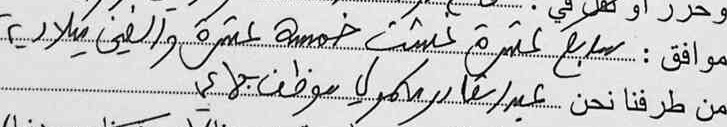 وحرر أو نقل في :
موافق : سابع عشرة غشت خمسة عشرة والفين ميلادية
من طرفنا نحن عبد القادر موظف جماعي